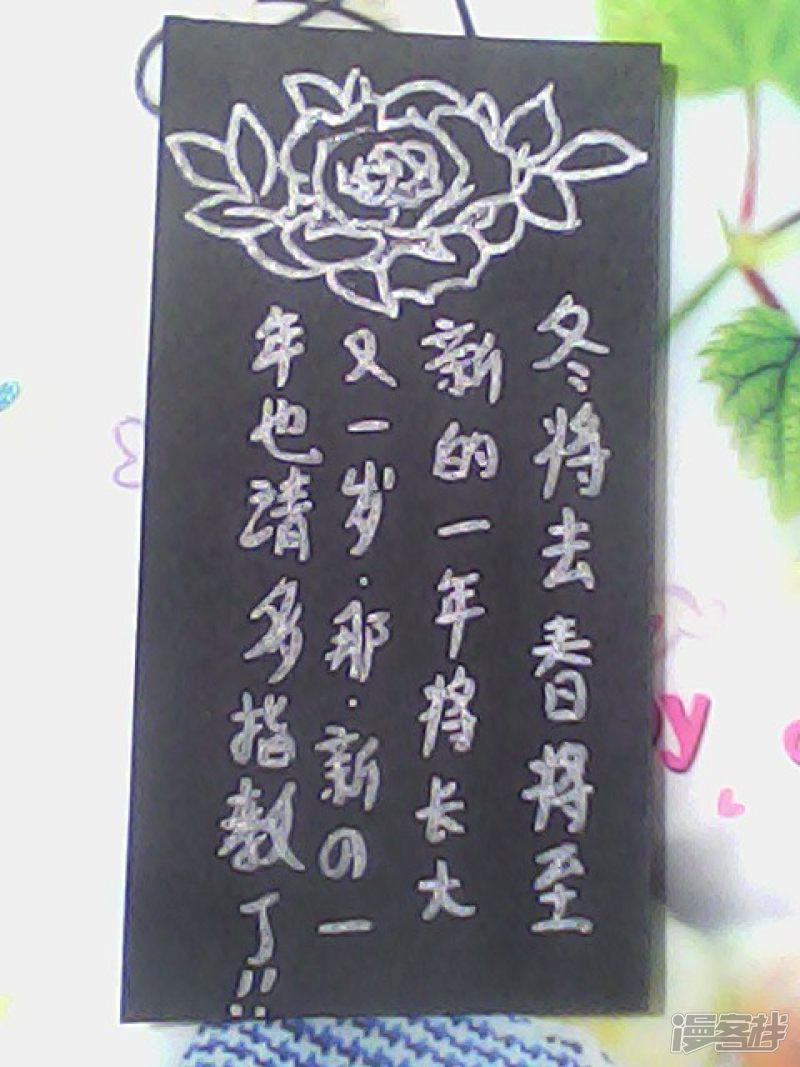 冬将去春将至
新的一年将长大
又一岁·那·新の一
年也请多指教了!!
漫客栈